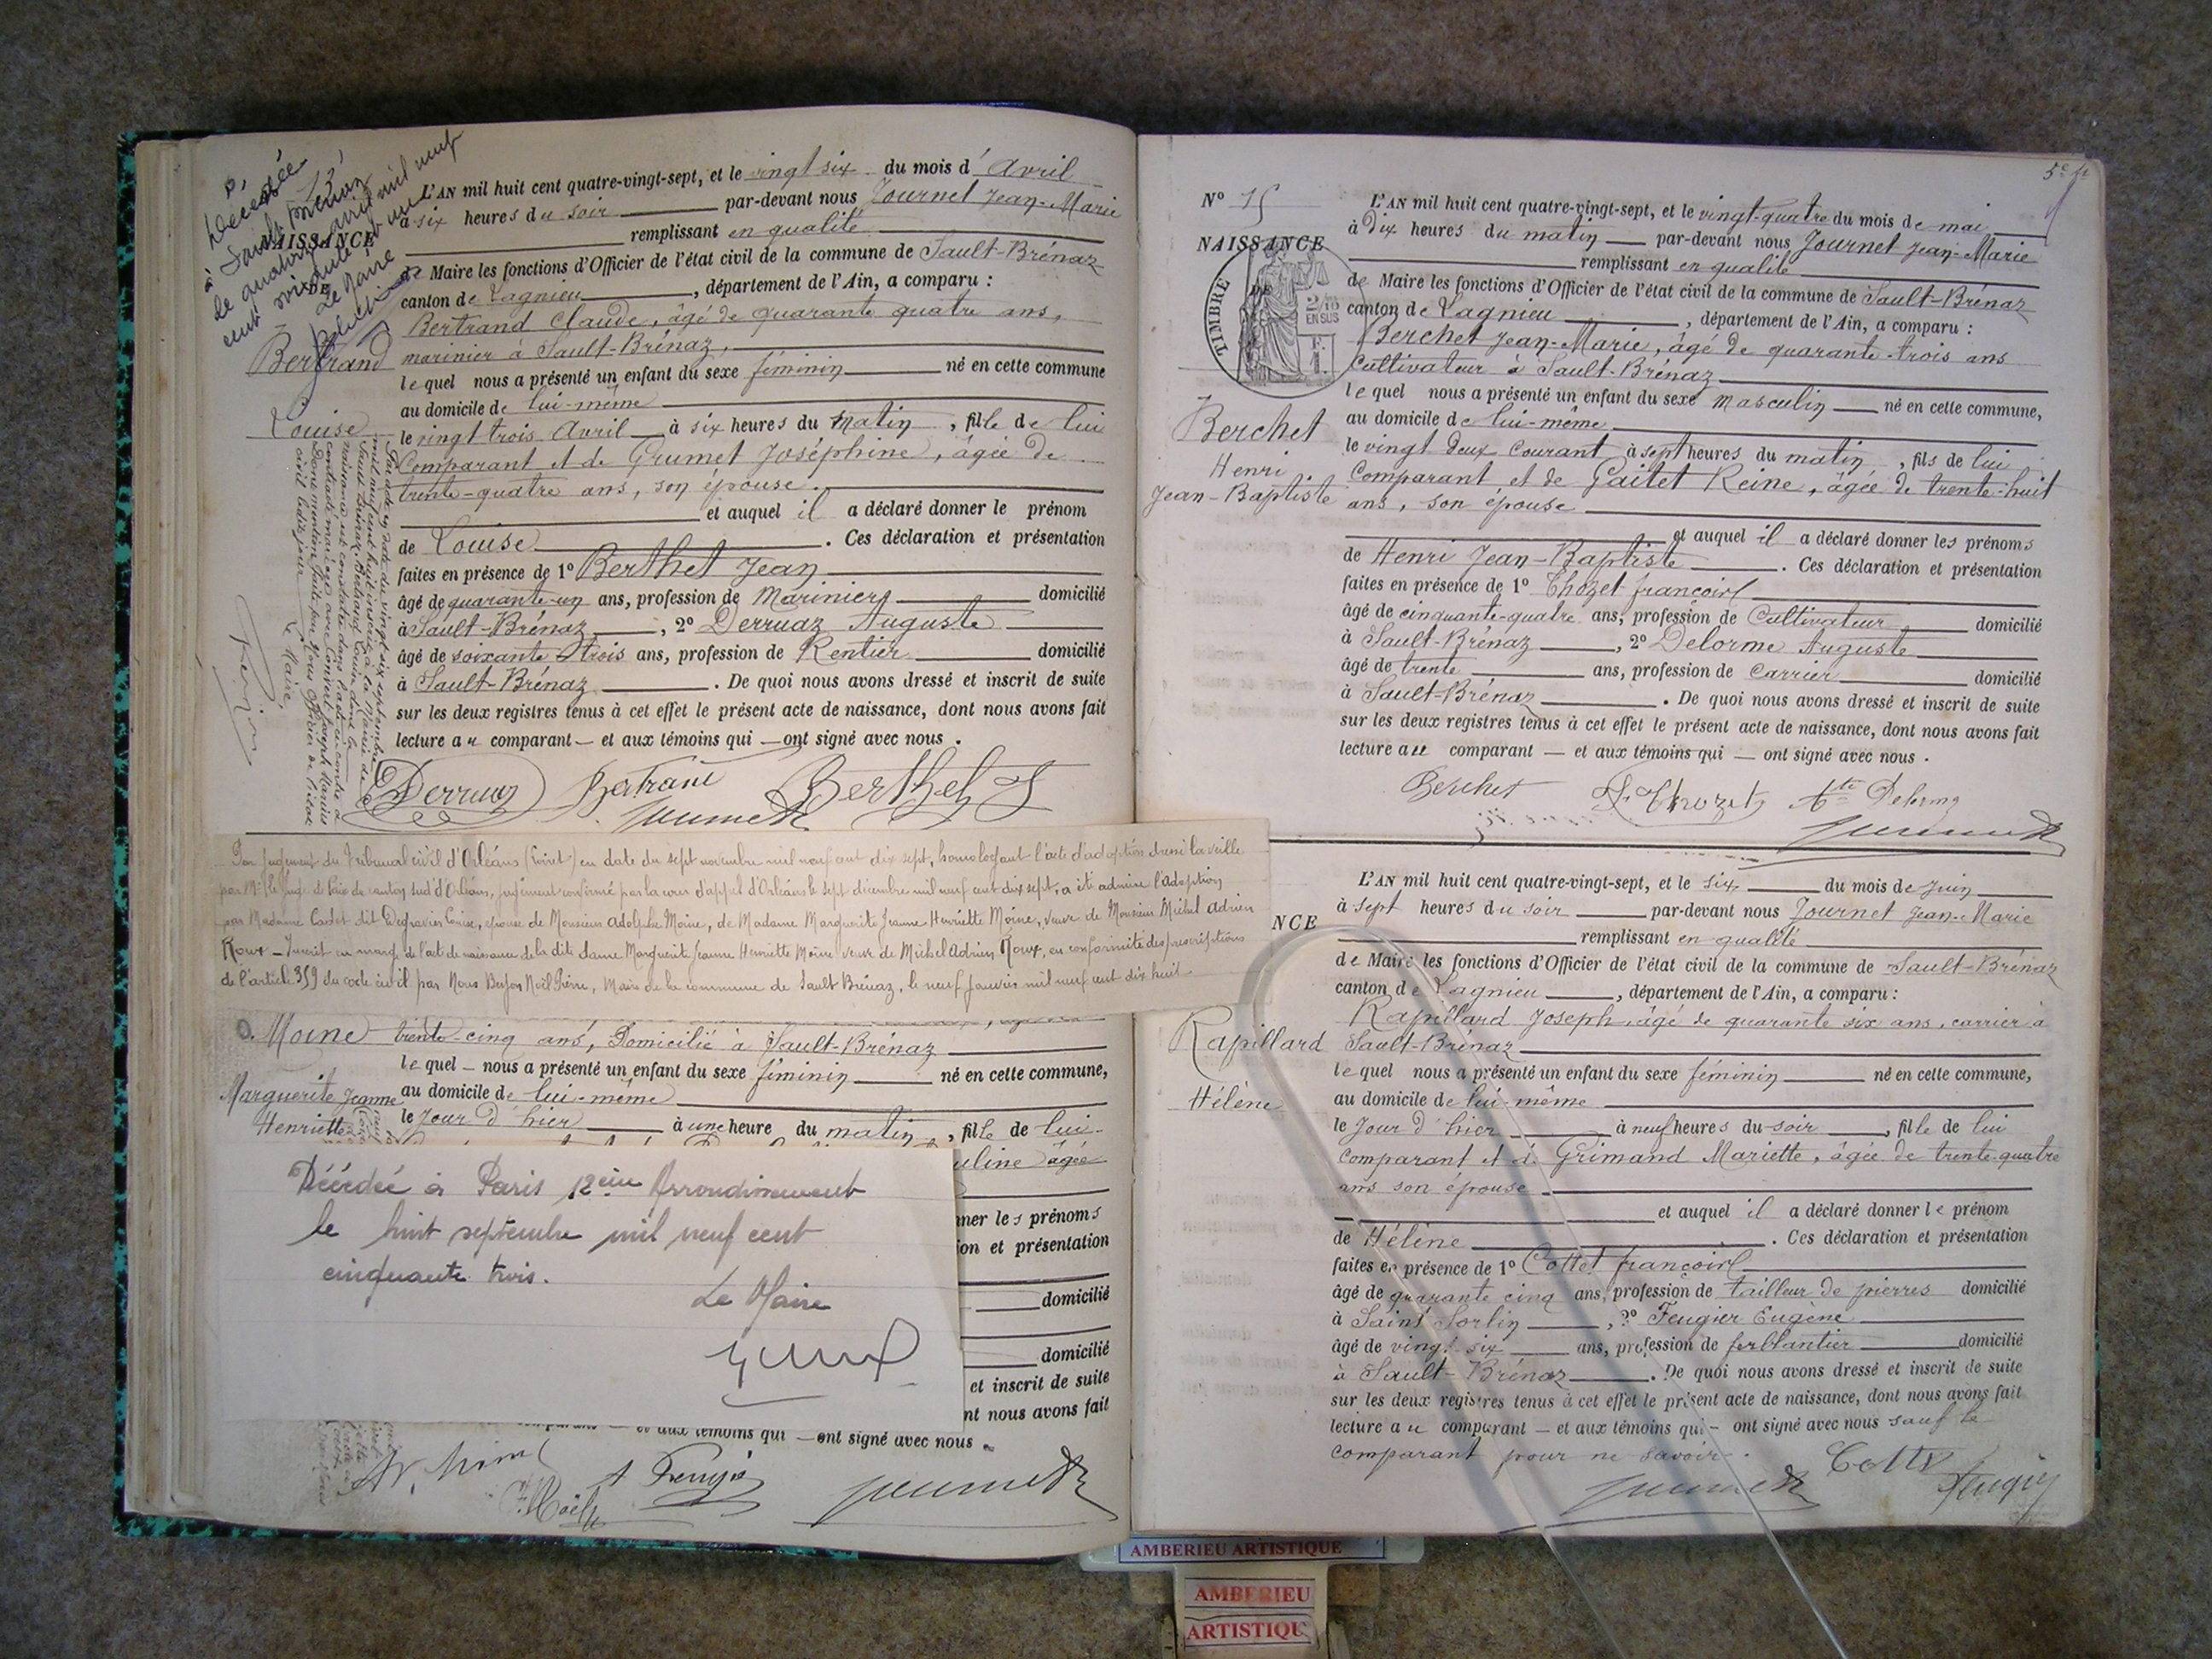 Décédée
à Saint
le quatorze avril mil neuf
cent soixante et un
Le Maire
NAISSANCE
DE
Bertrand
Louise
L'AN mil huit cent quatre-vingt-sept, et le vingt six du mois d' Avril
à six heures du soir par-devant nous Journet Jean-Marie
remplissant en qualité
de Maire les fonctions d'Officier de l'état civil de la commune de Sault-Brénaz
canton de Lagnieu, département de l'Ain, a comparu :
Bertrand Claude, âgé de quarante quatre ans,
marinier à Sault-Brénaz,
lequel nous a présenté un enfant du sexe féminin né en cette commune
au domicile de lui-même
le vingt trois Avril à six heures du matin, fille de lui
Comparant et de Grumet Joséphine, âgée de
trente-quatre ans, son épouse.
et auquel il a déclaré donner le prénom
de Louise. Ces déclaration et présentation
faites en présence de 1º Berthet Jean
âgé de quarante-un ans, profession de Marinier domicilié
à Sault-Brénaz, 2º Derruaz Auguste
âgé de soixante trois ans, profession de Rentier domicilié
à Sault-Brénaz. De quoi nous avons dressé et inscrit de suite
sur les deux registres tenus à cet effet le présent acte de naissance, dont nous avons fait
lecture au comparant — et aux témoins qui — ont signé avec nous.
Derruaz Bertrand Berthet J
Journet
Par acte en date du vingt six septembre
mil neuf cent huit inscrit à la Mairie de
Sault-Brénaz, Bertrand Louise dont la
naissance est constatée dans l'acte ci-contre a
contracté mariage avec Convert Joseph Marius
Dont mention faite par Nous Officier de l'état
civil ledit jour
Le Maire,
Par jugement du Tribunal civil d'Orléans (Loiret) en date du sept novembre mil neuf cent dix sept, homologant l'acte d'adoption dressé la veille
par Mr le Juge de Paix du canton sud d'Orléans, jugement confirmé par la cour d'appel d'Orléans le sept décembre mil neuf cent dix sept, a été admise l'Adoption
par Madame Cadet dit Degravier Louise, épouse de Monsieur Adolphe Moine, de Madame Marguerite Jeanne Henriette Moine, veuve de Monsieur Michel Adrien
Roux — Inscrit en marge de l'acte de naissance de la dite dame Marguerite Jeanne Henriette Moine veuve de Michel Adrien Roux, en conformité des prescriptions
de l'article 359 du code civil par Nous Berjon Noël Pierre, Maire de la commune de Sault Brénaz, le neuf Janvier mil neuf cent dix huit
Moine
Marguerite Jeanne
Henriette
trente-cinq ans, Domicilié à Sault-Brénaz
lequel — nous a présenté un enfant du sexe féminin né en cette commune,
au domicile de lui-même
le Jour d'hier à une heure du matin, fille de lui
uline âgée
Décédée à Paris 12ème Arrondissement
le huit septembre mil neuf cent
cinquante trois.
Le Maire
ner les prénoms
ion et présentation
domicilié
domicilié
et inscrit de suite
nt nous avons fait
et aux témoins qui — ont signé avec nous
Journet
5e f
Nº 15
NAISSANCE
DE
TIMBRE
2/10
EN SUS
Berchet
Henri
Jean-Baptiste
L'AN mil huit cent quatre-vingt-sept, et le vingt-quatre du mois de mai
à Dix heures du matin par-devant nous Journet Jean-Marie
remplissant en qualité
de Maire les fonctions d'Officier de l'état civil de la commune de Sault-Brénaz
canton de Lagnieu, département de l'Ain, a comparu :
Berchet Jean-Marie, âgé de quarante-trois ans
Cultivateur à Sault-Brénaz
lequel nous a présenté un enfant du sexe masculin né en cette commune,
au domicile de lui-même
le vingt deux courant à sept heures du matin, fils de lui
Comparant et de Gaitet Reine, âgée de trente-huit
ans, son épouse
et auquel il a déclaré donner les prénoms
de Henri Jean-Baptiste. Ces déclaration et présentation
faites en présence de 1º Thozet françois
âgé de cinquante-quatre ans, profession de Cultivateur domicilié
à Sault-Brénaz, 2º Delorme Auguste
âgé de trente ans, profession de Carrier domicilié
à Sault-Brénaz. De quoi nous avons dressé et inscrit de suite
sur les deux registres tenus à cet effet le présent acte de naissance, dont nous avons fait
lecture au comparant — et aux témoins qui — ont signé avec nous.
Berchet F. Thozet Ate Delorme
Journet
NCE
Rapillard
Hélène
L'AN mil huit cent quatre-vingt-sept, et le six du mois de juin
à sept heures du soir par-devant nous Journet Jean-Marie
remplissant en qualité
de Maire les fonctions d'Officier de l'état civil de la commune de Sault-Brénaz
canton de Lagnieu, département de l'Ain, a comparu :
Rapillard Joseph, âgé de quarante six ans, carrier à
Sault-Brénaz
lequel nous a présenté un enfant du sexe féminin né en cette commune,
au domicile de lui-même
le Jour d'hier à neuf heures du soir, fille de lui
comparant et de Grimand Mariette, âgée de trente-quatre
ans son épouse
et auquel il a déclaré donner le prénom
de Hélène. Ces déclaration et présentation
faites en présence de 1º Cottet françois
âgé de quarante cinq ans, profession de tailleur de pierres domicilié
à Saint Sorlin, 2º Feugier Eugène
âgé de vingt six ans, profession de ferblantier domicilié
à Sault-Brénaz. De quoi nous avons dressé et inscrit de suite
sur les deux registres tenus à cet effet le présent acte de naissance, dont nous avons fait
lecture au comparant — et aux témoins qui — ont signé avec nous sauf le
comparant pour ne savoir.
Journet Cottet Feugier
AMBERIEU ARTISTIQUE
AMBERIEU
ARTISTIQU